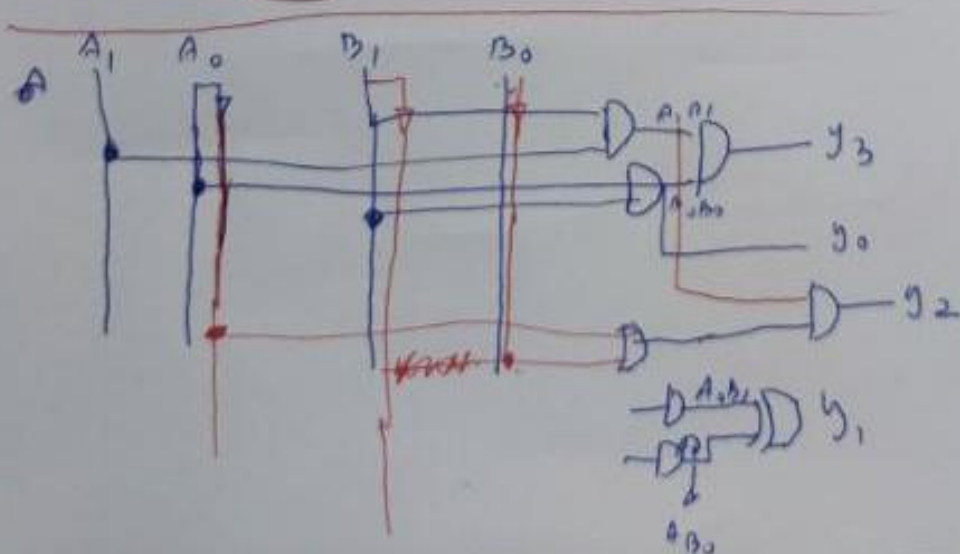 A₁ A₀ B₁ B₀
A
A₁B₁
y₃
A₀B₀
y₀
y₂
A₀B₁
y₁
AB₀